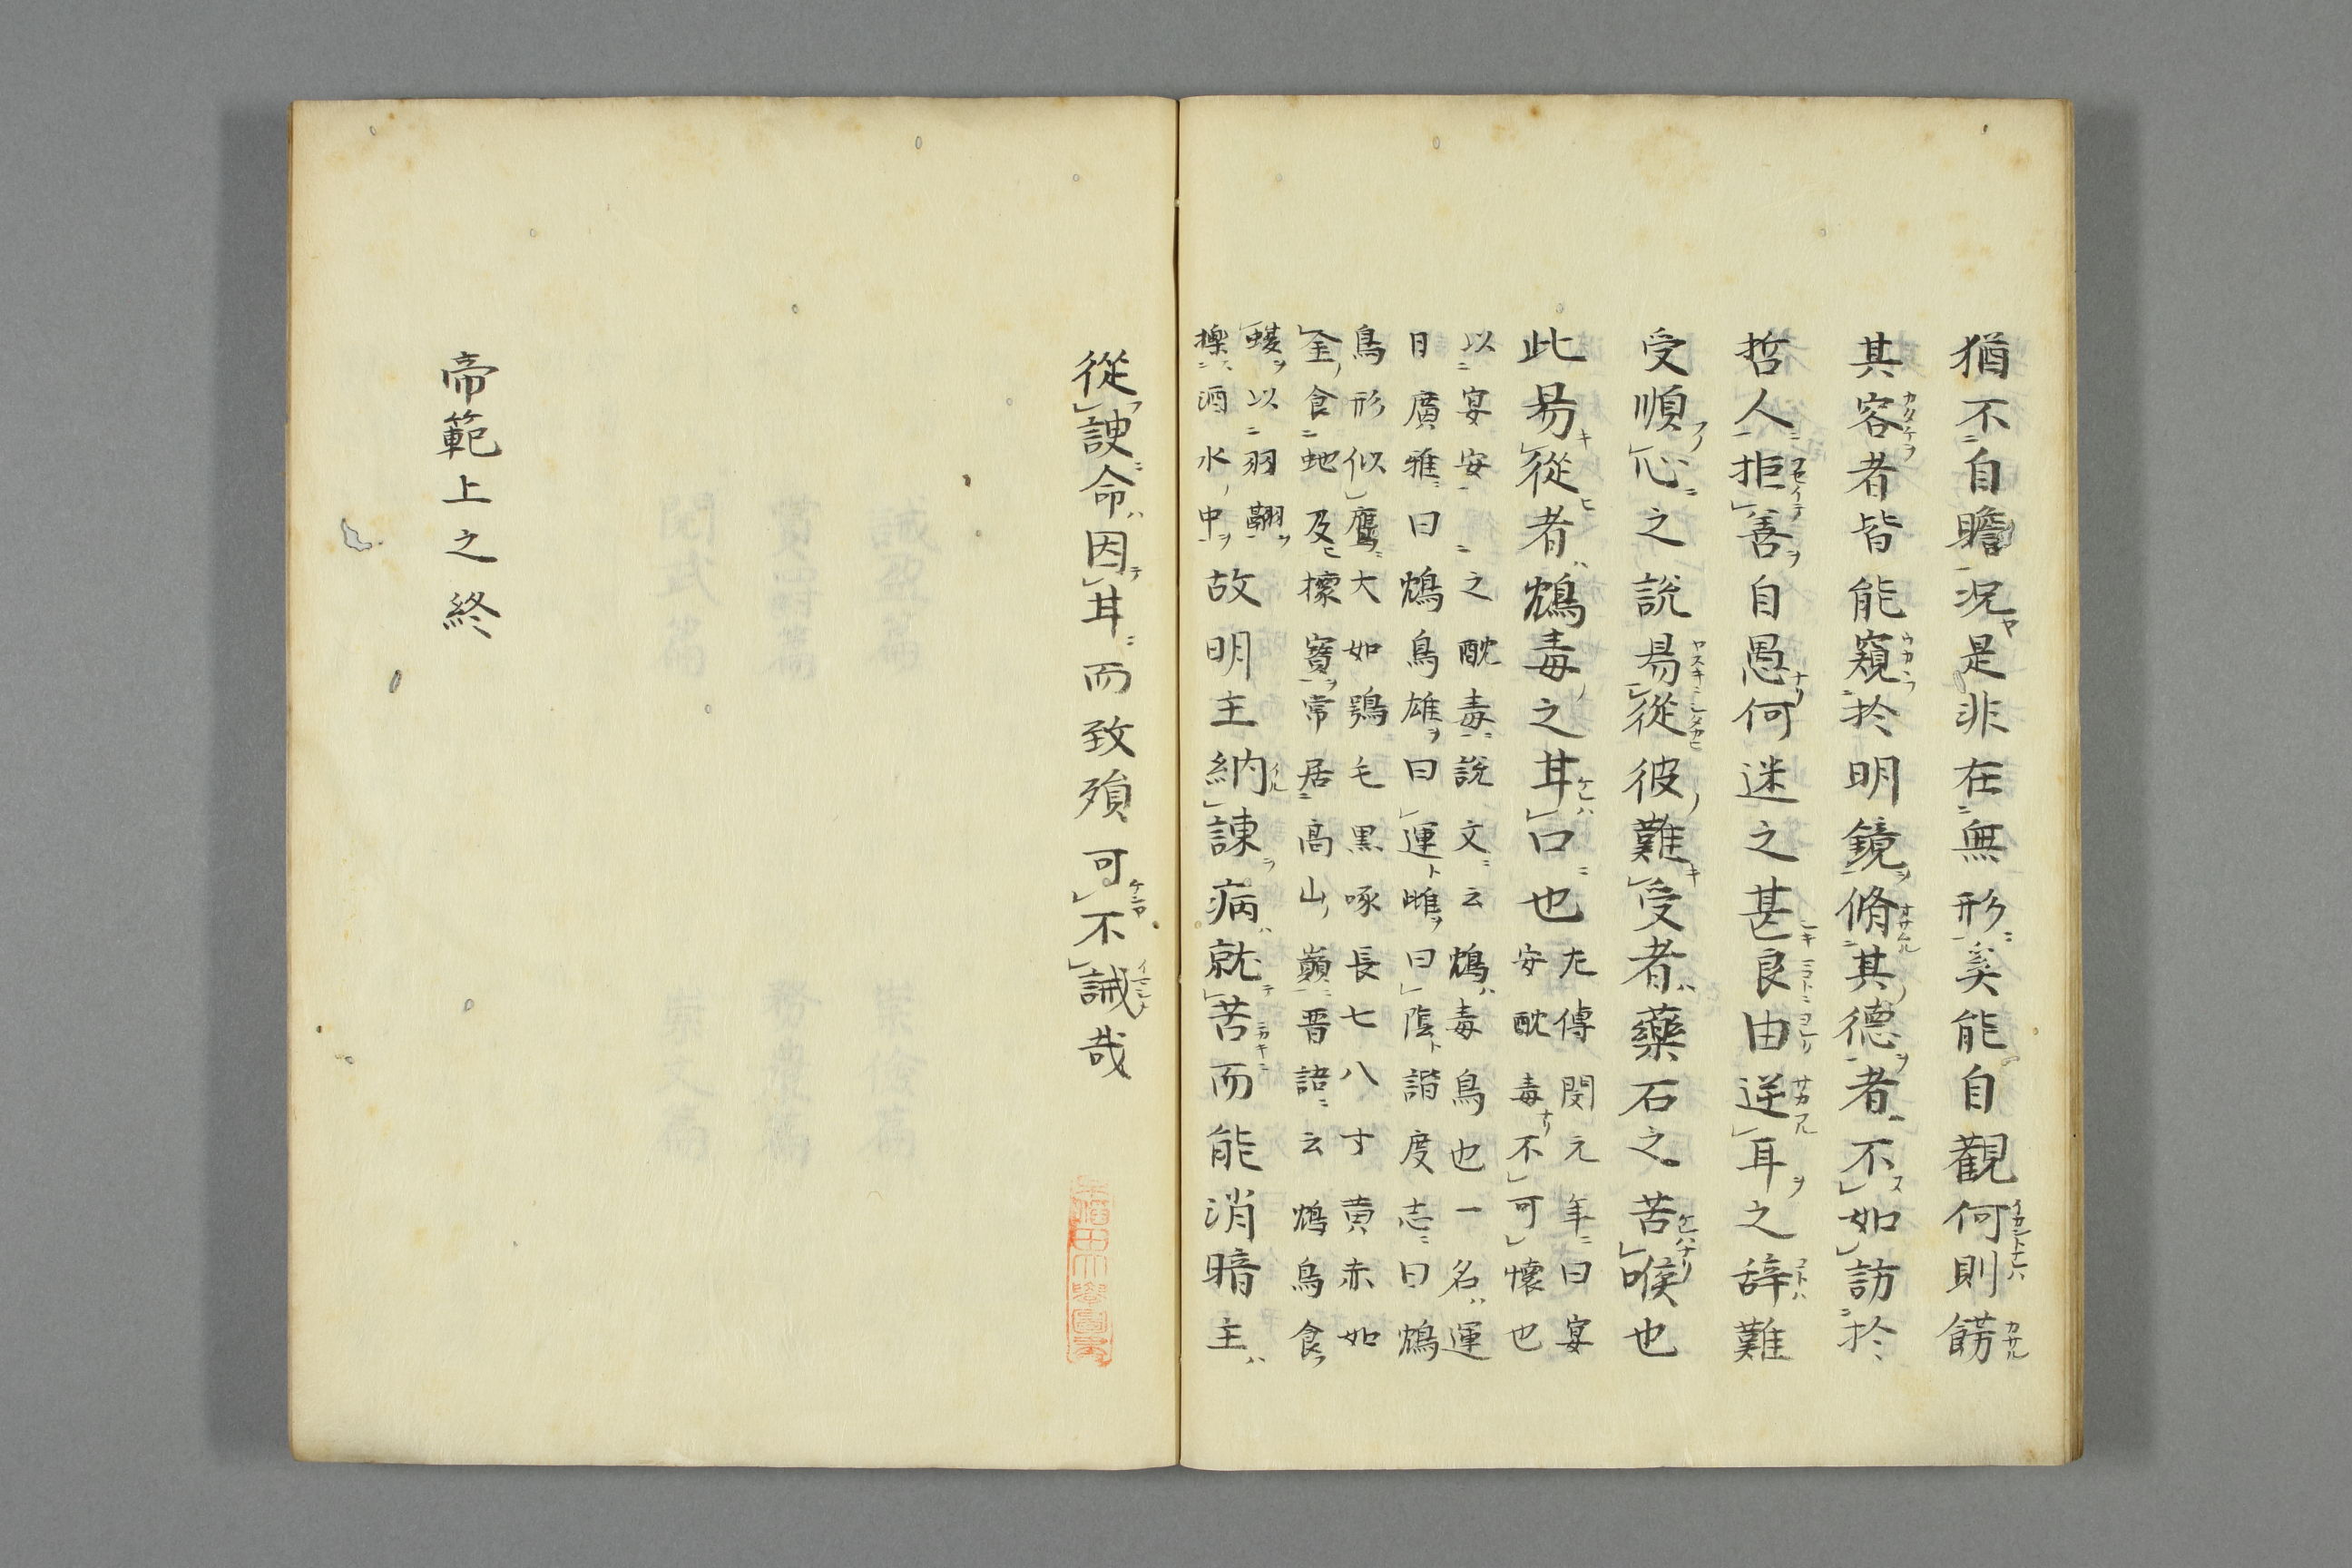 猶不自瞻況是非在無形奚能自觀何則餝
其容者皆能窺於明鏡脩其德者不如訪於
哲人拒善自愚何迷之甚良由逆耳之辞難
受順心之説易從彼難受者藥石之苦喉也
此易從者鴆毒之甘口也
左傳閔元年曰宴
安酖毒不可懐也
以宴安之酖毒説文云鴆毒鳥也一名運
日廣雅曰鴆鳥雄曰運雌曰陰諧度志曰鴆
鳥形似鷹大如鶚毛黒啄長七八寸黄赤如
金食虵及橡實常居高山巓晋語云鴆鳥食
蝮以羽翮
擽酒水中
故明主納諌病就苦而能消暗主
從諛命因甘而致殞可不誡哉
帝範上之終